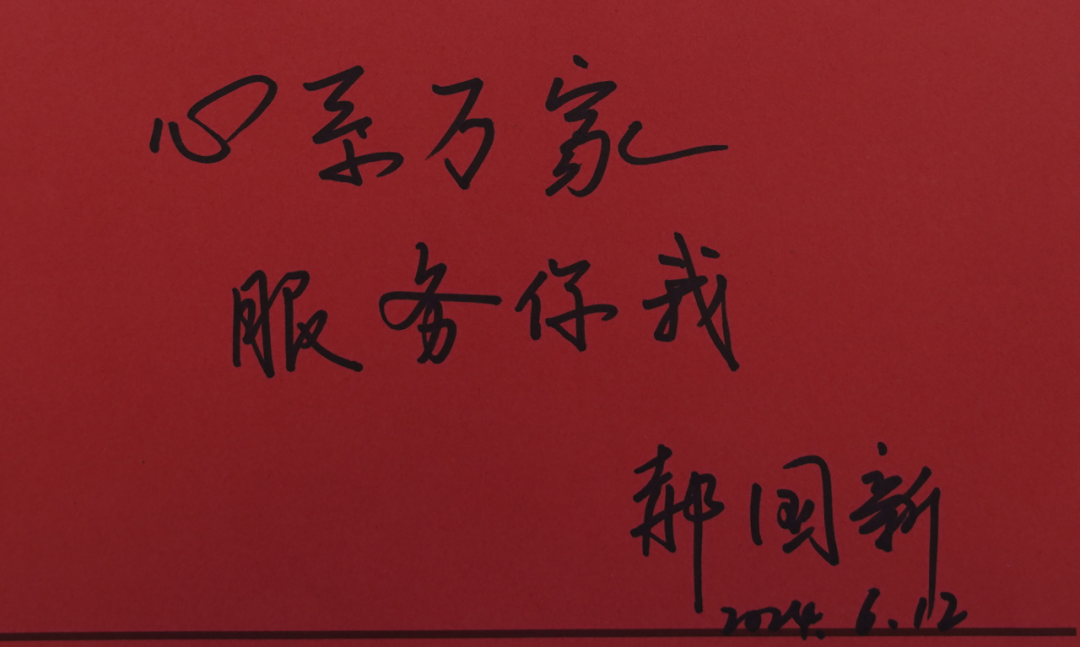 心系万家
服务你我
郝国新
2024.6.12